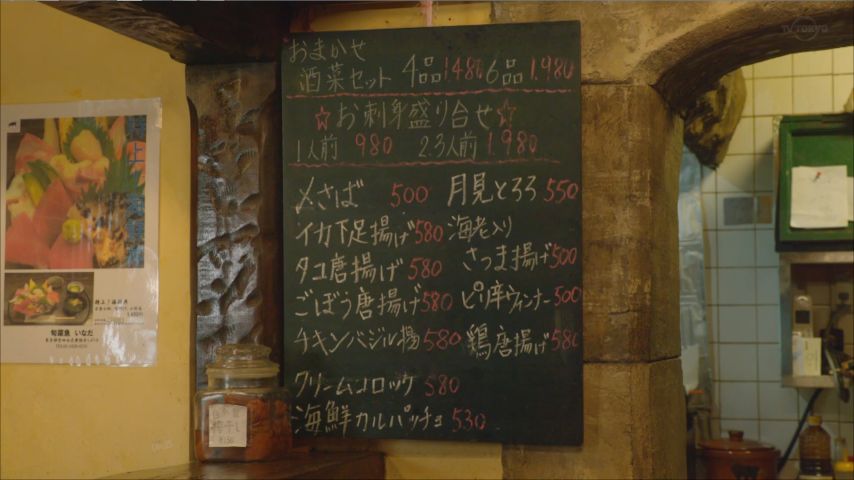 TV TOKYO
おまかせ
酒菜セット 4品1480 6品1.980
☆お刺身盛り合せ☆
1人前 980 2.3人前 1.980
〆さば 500 月見とろろ 550
イカ下足揚げ580 海老入り
タコ唐揚げ580 さつま揚げ500
ごぼう唐揚げ580 ピリ辛ウィンナー500
チキンバジル揚580 鶏唐揚げ580
クリームコロッケ580
海鮮カルパッチョ530
旬菜魚 いなだ
梅干し